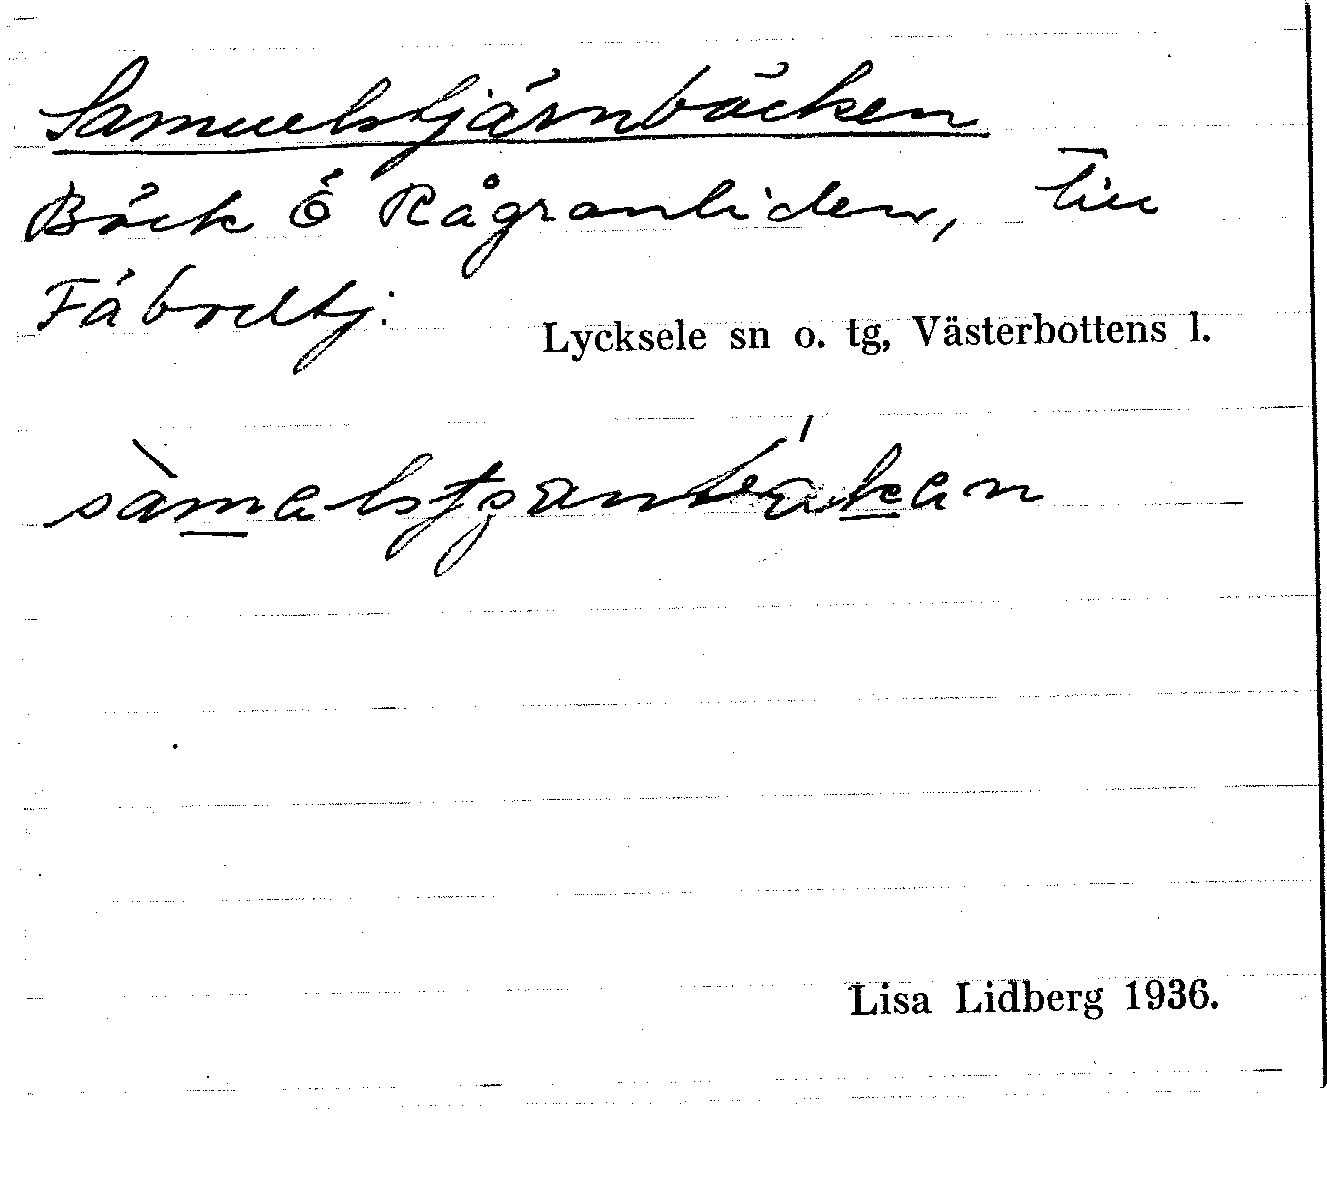 Samuelstjärnbäcken
Bäck Ö Rågranliden, till
Fäbodtj.
Lycksele sn o. tg, Västerbottens l.
Lisa Lidberg 1936.